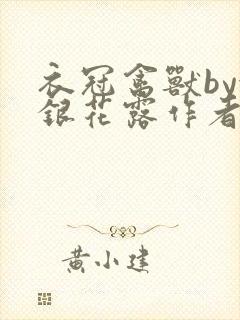 衣冠禽獸by
銀花露作者
黄小建